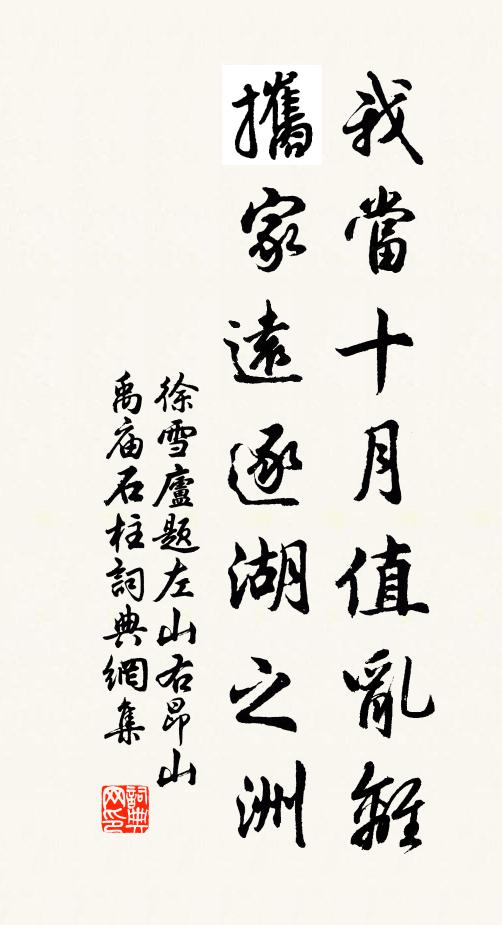 我當十月值亂離
攜家遠逐湖之洲
徐雪廬題左山右昂山
禹庙石柱詞典網集
詞典网印